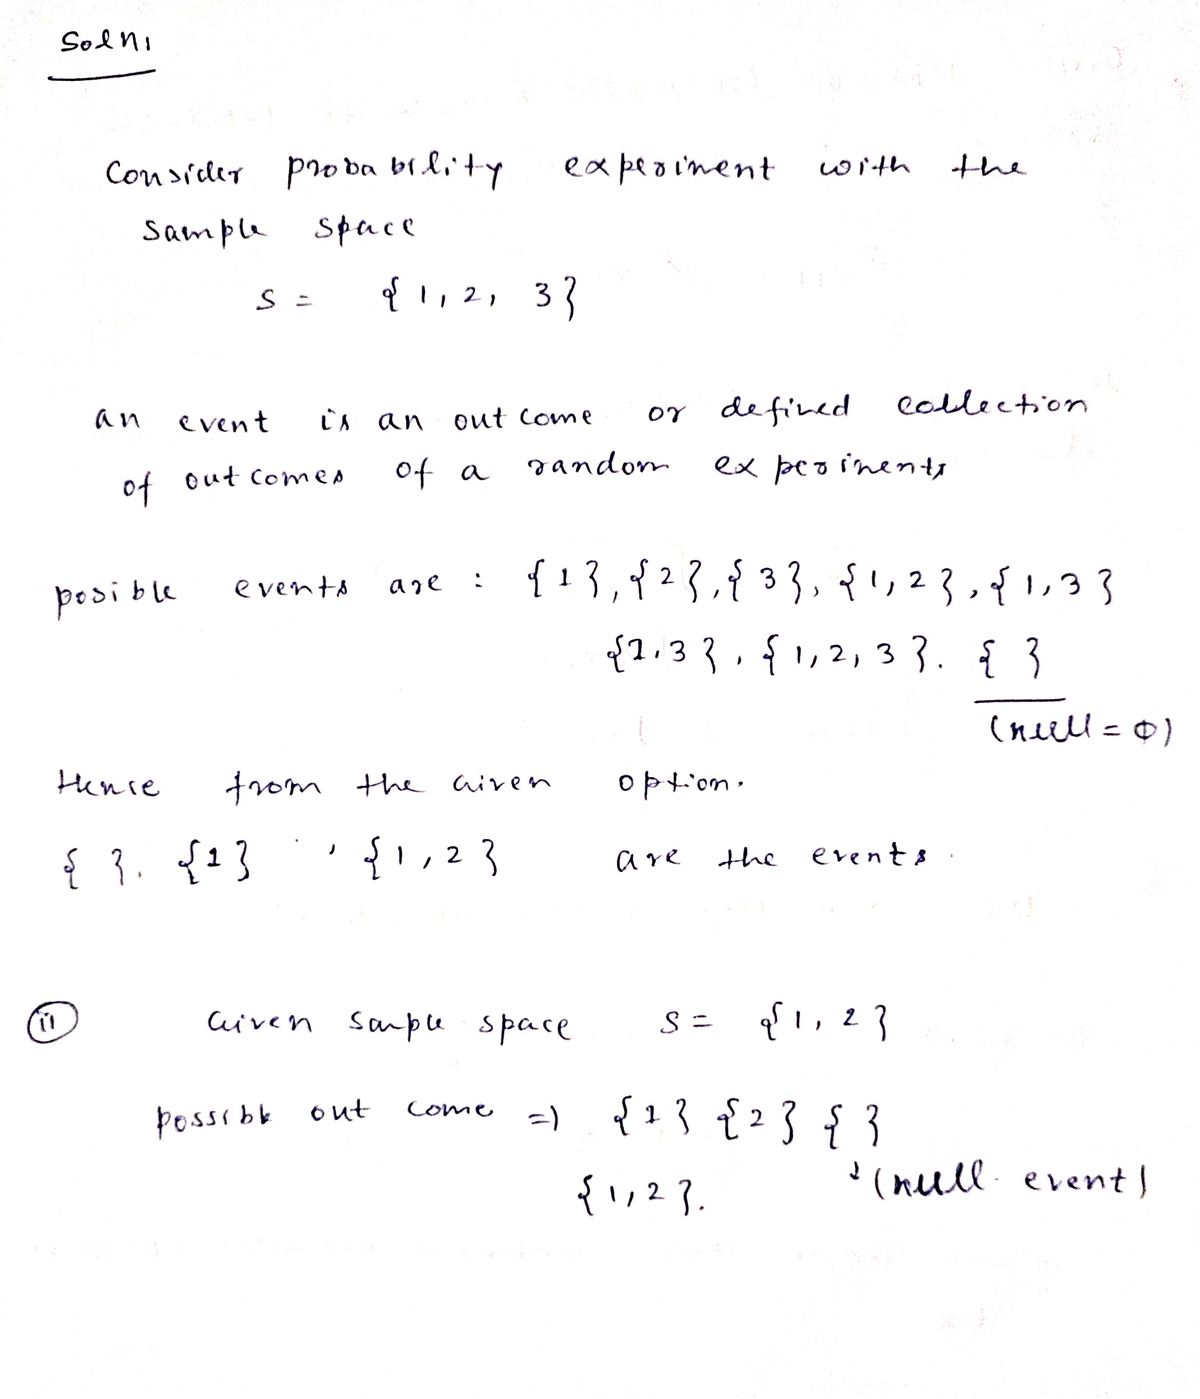 Soln1
Consider probability experiment with the
sample space
S = {1, 2, 3}
an event is an out come or defined collection
of out comes of a random experiments
posible events are : {1}, {2}, {3}, {1, 2}, {1, 3}
{2, 3}, {1, 2, 3}. { }
(null = Φ)
Hence from the Given option.
{ }. {1} , {1, 2} are the events.
(ii) Given sample space S = {1, 2}
possible out come => {1} {2} { }
{1, 2}. ↓ (null. event)